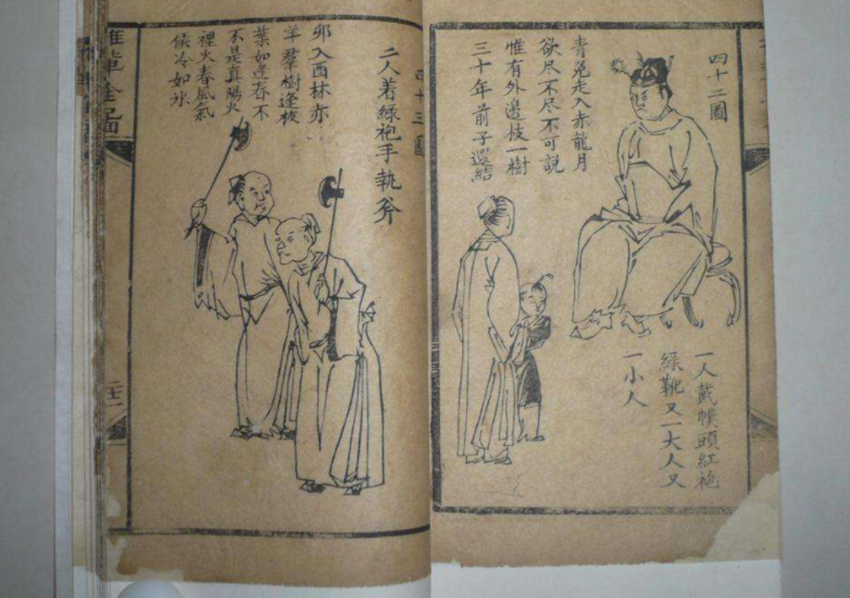 四十二圖
青兔走入赤龍月
欲尽不尽不可説
惟有外邊枝一樹
三十年前子還結
一人戴幞頭紅袍
綠靴又一大人又
一小人
四十三圖
二人着綠袍手執斧
卯入酉林亦
羊羣樹逢枝
葉如逢春不
不是真陽火
裡火春風氣
候冷如氷